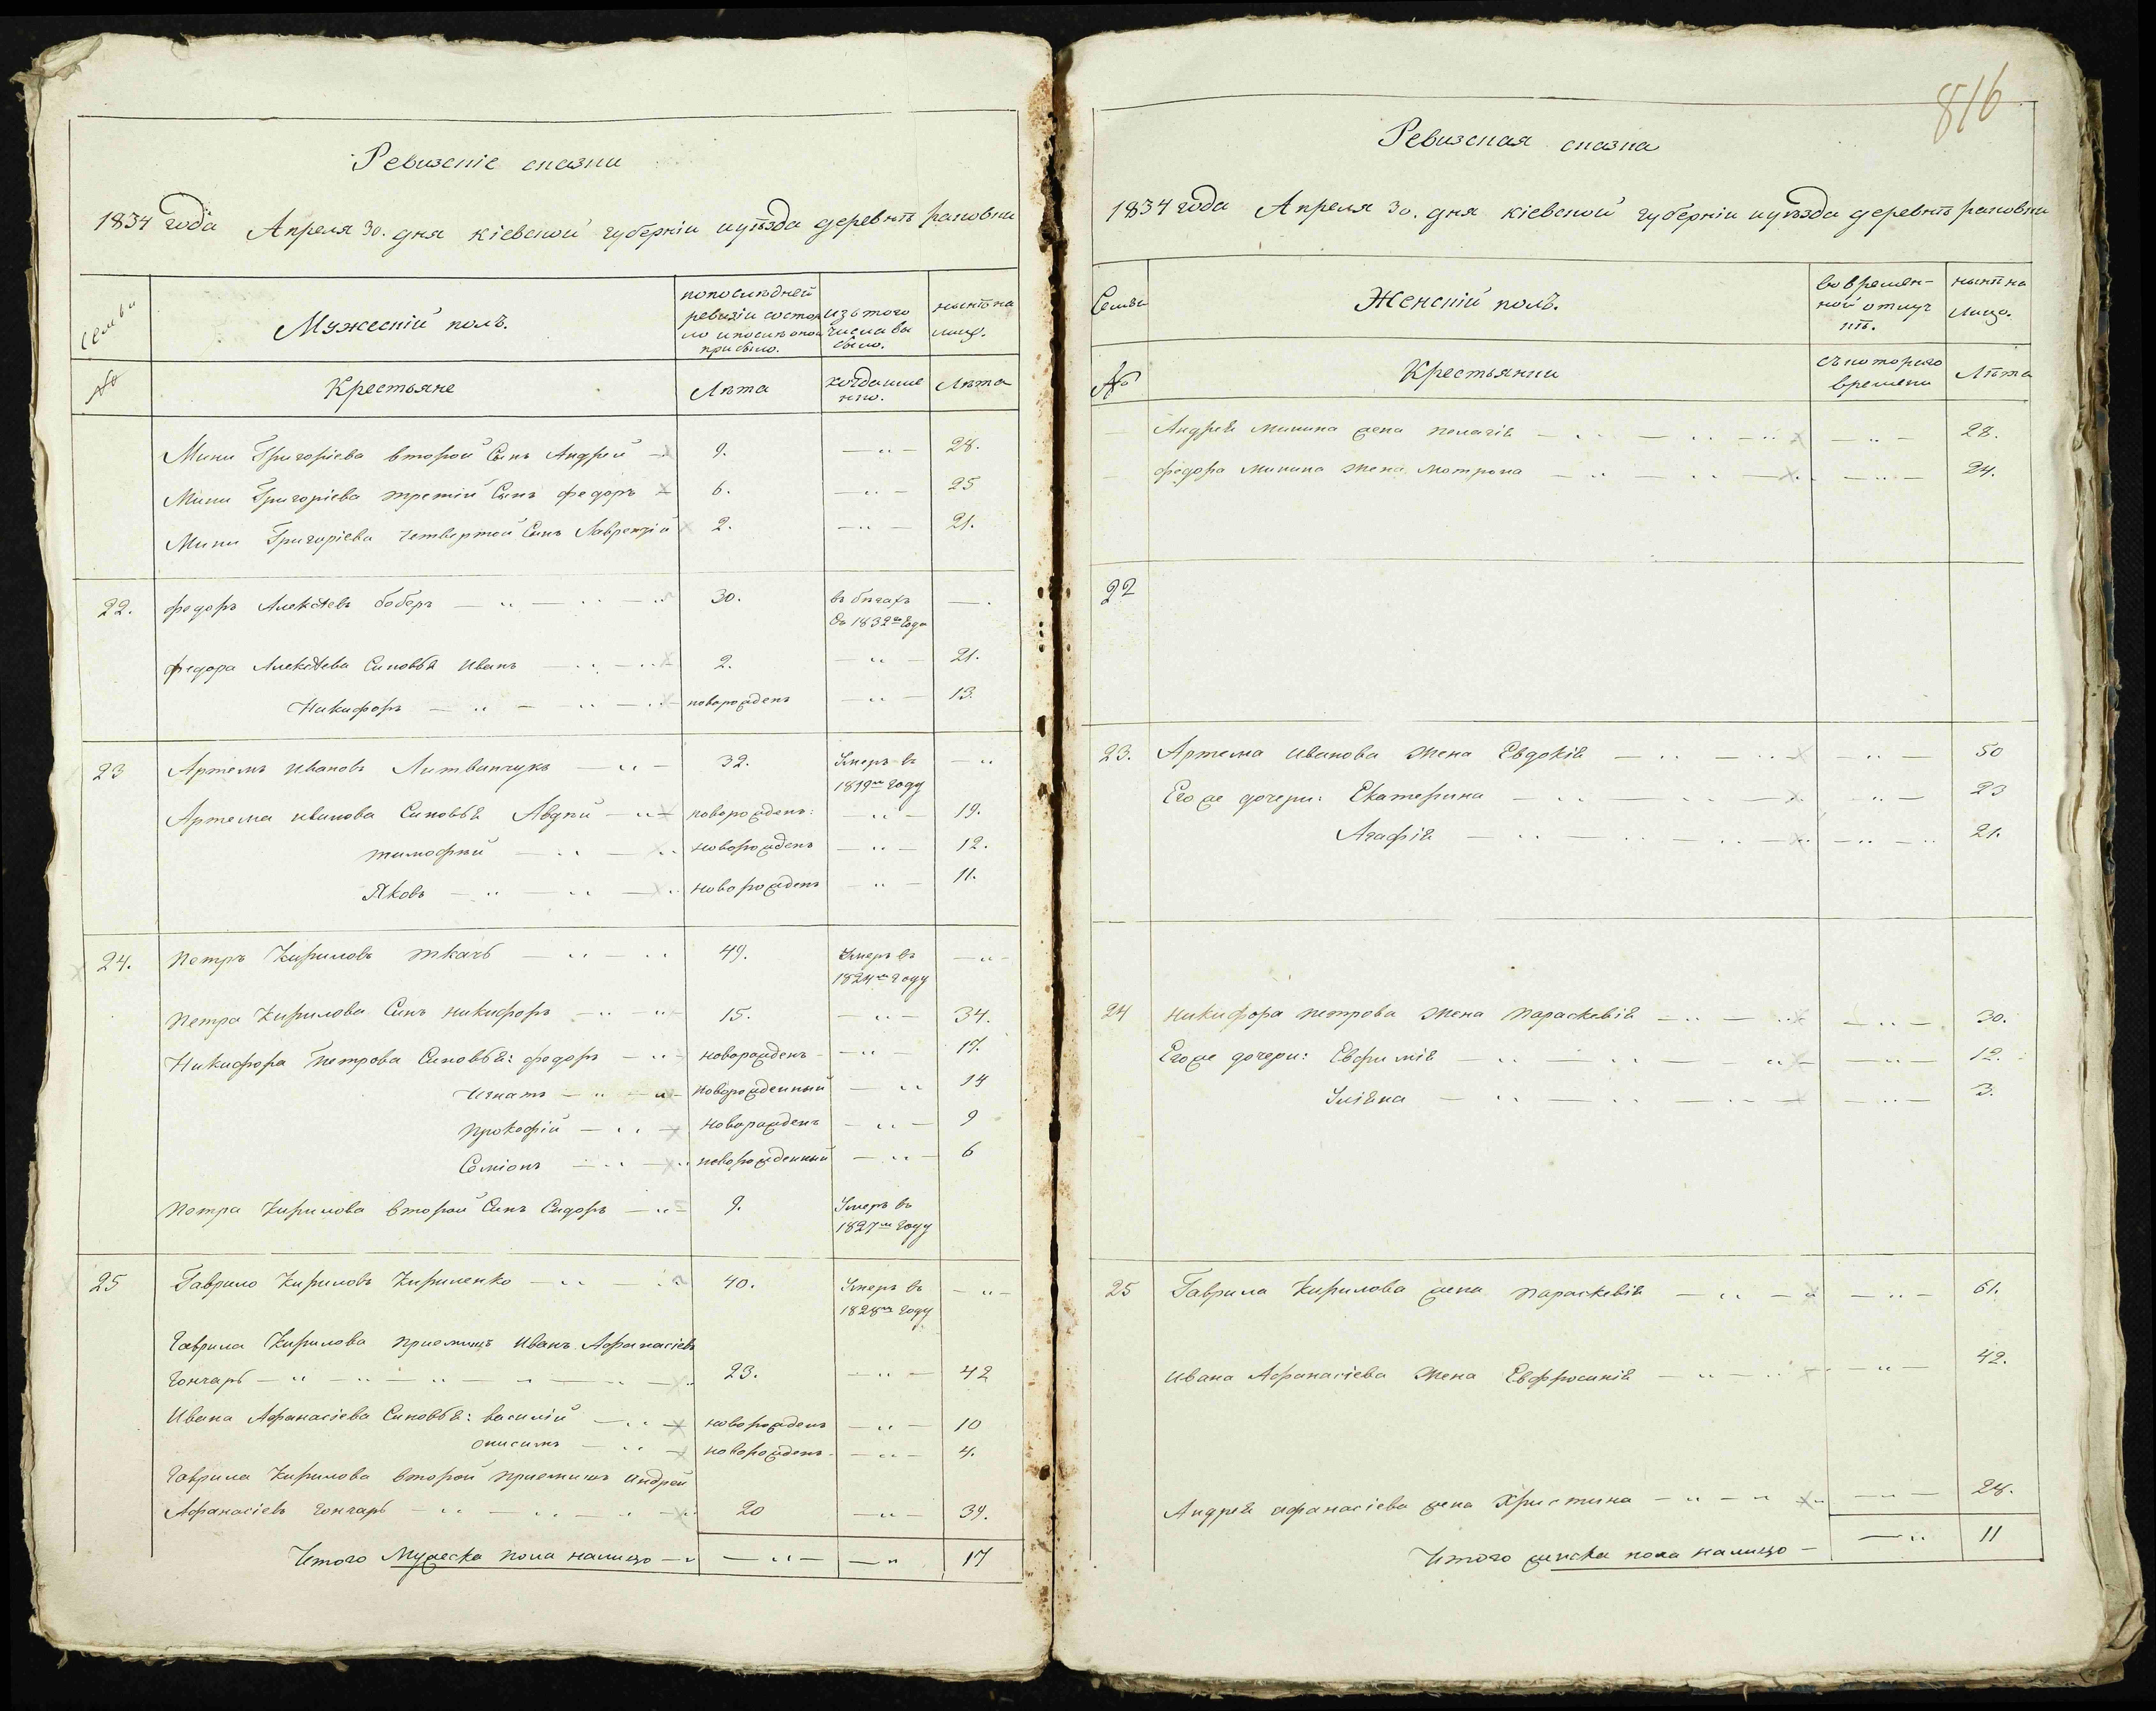 Ревизскіе сказки
1834 года Апреля 30. дня кіевской губерніи иуѣзда деревнѣ раковки
семьи
Мужескій полъ.
попослѣдней ревизіи состояло ипослѣ оной прибыло.
изътого числа выбыло.
нынѣ на лицо.
№
Крестьяне
Лѣта
когда имянно.
Лѣта
Мини Григоріева второй Сынъ Андрей — 9. — „ — 28.
Мини Григоріева третій Сынъ федоръ — 6. — „ — 25
Мини Григоріева Четвертой Сынъ Лаврентій 2. — „ — 21.
22. федоръ Алексѣевъ боберъ — „ — „ — 30. въ бѣгахъ —
Съ 1832го Года
федора Алексѣева Синовья Иванъ — „ — 2. — „ — 21.
Никифоръ — „ — „ — новорожденъ — „ — 13.
23 Артемъ Ивановъ Литвинчукъ — „ — 32. Умеръ въ — „
1819м году
Артема иванова Синовья Авдѣй — „ — новорожденъ: — „ — 19.
тимофѣй — „ — новорожденъ — „ — 12.
Яковъ — „ — „ — новорожденъ „ — 11.
24. Петръ Кириловъ ткачъ — „ — „ 49. Умеръ въ — „ —
1824м году
Петра Кирилова Синъ никифоръ — „ — 15. — „ — 34.
Никифора Петрова Синовья: федоръ — „ — новорожденъ — „ 17.
Игнатъ — „ — новорожденный — „ 14
прокофій — „ — новорожденъ — „ — 9
Семіонъ — „ — новорожденный — „ — 6
Петра Кирилова второй Синъ Сидоръ — „ — 9. Умеръ въ
1827м году
25 Гаврило Кириловъ Кириленко — „ — „ 40. Умеръ въ — „ —
1828м году
Гаврила Кирилова приемишъ Иванъ Афанасіевъ
Гончаръ — „ — „ — „ — 23. — „ — 42
Ивана Афанасіева Синовья: василій — „ — новорожденъ — „ — 10
онисимъ — „ — новорожденъ — „ — 4.
Гаврила Кирилова второй приемишъ андрей
Афанасіевъ Гончаръ — „ — „ — 20 — „ — 39.
Итого Мужеска пола налицо — „ — „ — — „ 17
816
Ревизская сказка
1834 года Апреля 30. дня кіевской губерніи иуѣзда деревнѣ раковки
Семьи
Женскій полъ.
во временной отлучкѣ.
нынѣ на лицо.
№
Крестьянки
съ котораго времени
Лѣта
Андрея минина жена пелагія — „ — „ — — „ — 28.
федора минина жена мотрона — „ — „ — — „ — 24.
22
23. Артема иванова жена Евдокія — „ — „ — — „ — 50
Его же дочери: Екатерина — „ — „ — „ — 23
Агафія — „ — „ — „ — — „ — 21.
24 никифора петрова жена параскевія — „ — „ — „ — 30.
Его же дочери: Евфимія — „ — „ — „ — „ — 12.
Уліяна — „ — „ — „ — — „ — 3.
25 Гаврила Кирилова жена параскевія — „ — „ — „ — 61.
ивана Афанасіева жена Евфросинія — „ — „ — „ — 42.
Андрея афанасіева жена Христина — „ — „ — „ — 28.
Итого женска пола налицо — — „ 11